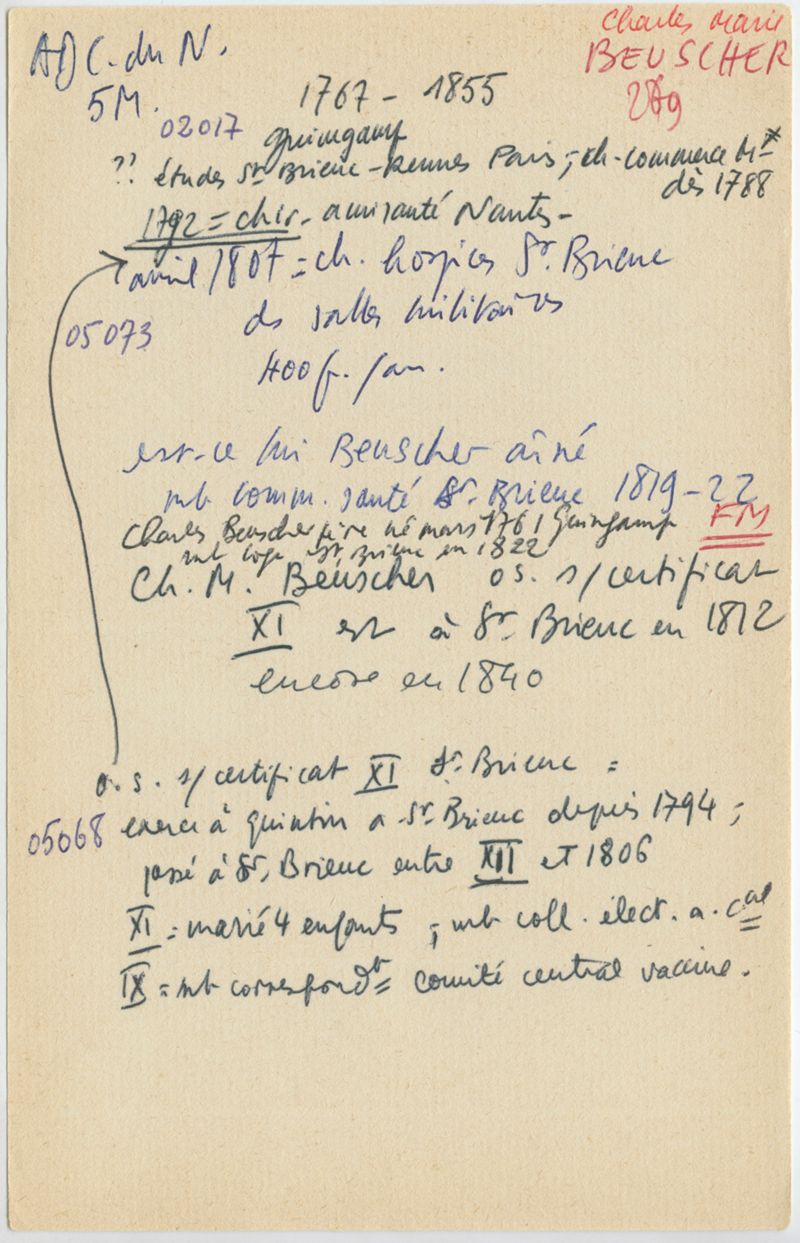 Charles Marie
BEUSCHER
289
AD C. du N.
5M.
1767 - 1855
02017
Guimgamp
?? études St Brieuc - Rennes Paris ; ch. commerce
dès 1788
1792 = chir. amirauté Nantes -
avril 1807 = ch. hospices St. Brieuc
05073
des salles militaires
400 fr. / an.
est-ce lui Beuscher aîné
mb comm. santé St. Brieuc 1819-22
Charles Beuscher père né mars 1761 Guingamp
FM
mb loge St. Brieuc en 1822
Ch. M. Beuscher o.s. s/certificat
XI est à St. Brieuc en 1812
encore en 1840
o.s. s/certificat XI St. Brieuc =
05068
exerce à Quintin a St. Brieuc depuis 1794 ;
passé à St. Brieuc entre XII et 1806
XI = marié 4 enfants ; mb coll. élect. a. cal
IX = mb correspondt = comité central vaccine.